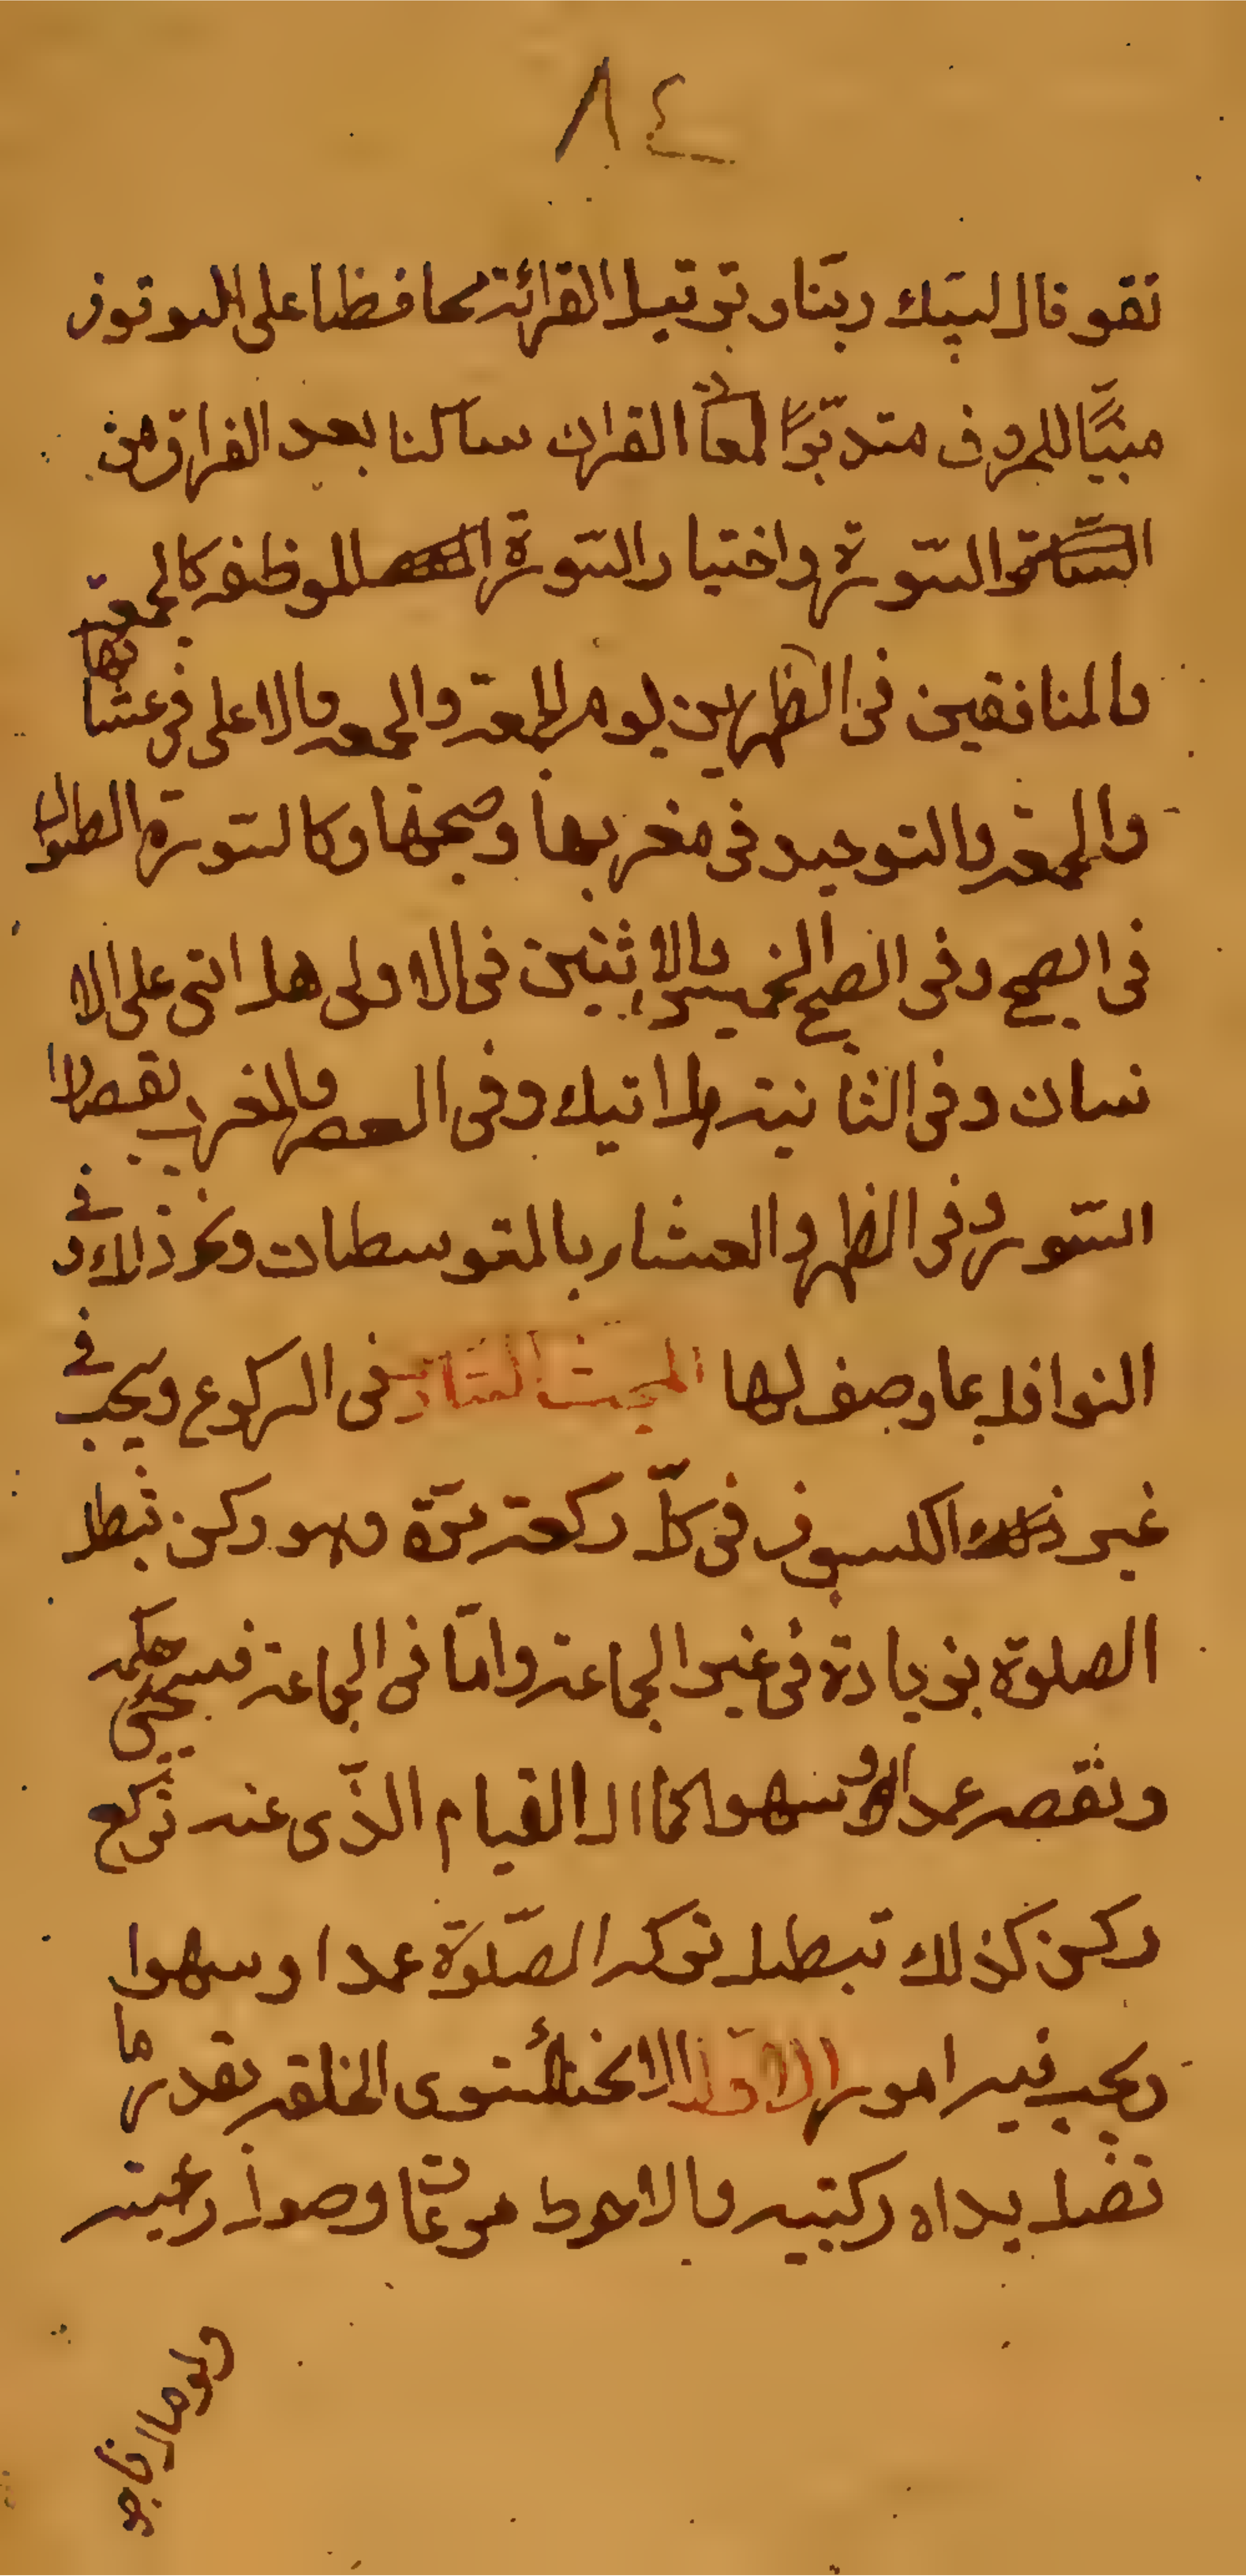 ٨٤
تقو قال لبيّك ربّنا و ترتيل القرائة محافظا على الوقوف
مبيّنًا للحروف متدبّرًا لمعاني القران ساكنا بعد الفراق من
السّورة واختيار السّورة الموظفه كالجمعة
والمنافقين فى الظهرين يوم الجمعة والجمعه والاعلى فى عشائها
والجمعة والتوحيد فى مغربها وصبحها وكالسّورة الطوال
فى الصبح وفى الصبح الخميس والاثنين فى الاولى هل اتى على الا
نسان وفى الثانية هل اتيك وفى العصر والمغرب بقصار
السّور وفى الظهر والعشاء بالمتوسطات ونحو ذلك و فى
النوافل بما وصف لها المبحث السّادس فى الركوع ويجب فى
غير الكسوف فى كلّ ركعة مرّة وهو ركن تبطل
الصلوة بزيادة فى غير الجماعة وامّا فى الجماعة فسيجئى حكمه
ونقصه عمدا او سهوا كما ان القيام الذّى عنه تركع
ركن كذلك تبطل تركه الصّلوة عمدا و سهوا
يجب فيه امور الاوّل الانحناء لمستوى الخلقه بقدر ما
تصل يداه ركبتيه والاحوط وصول